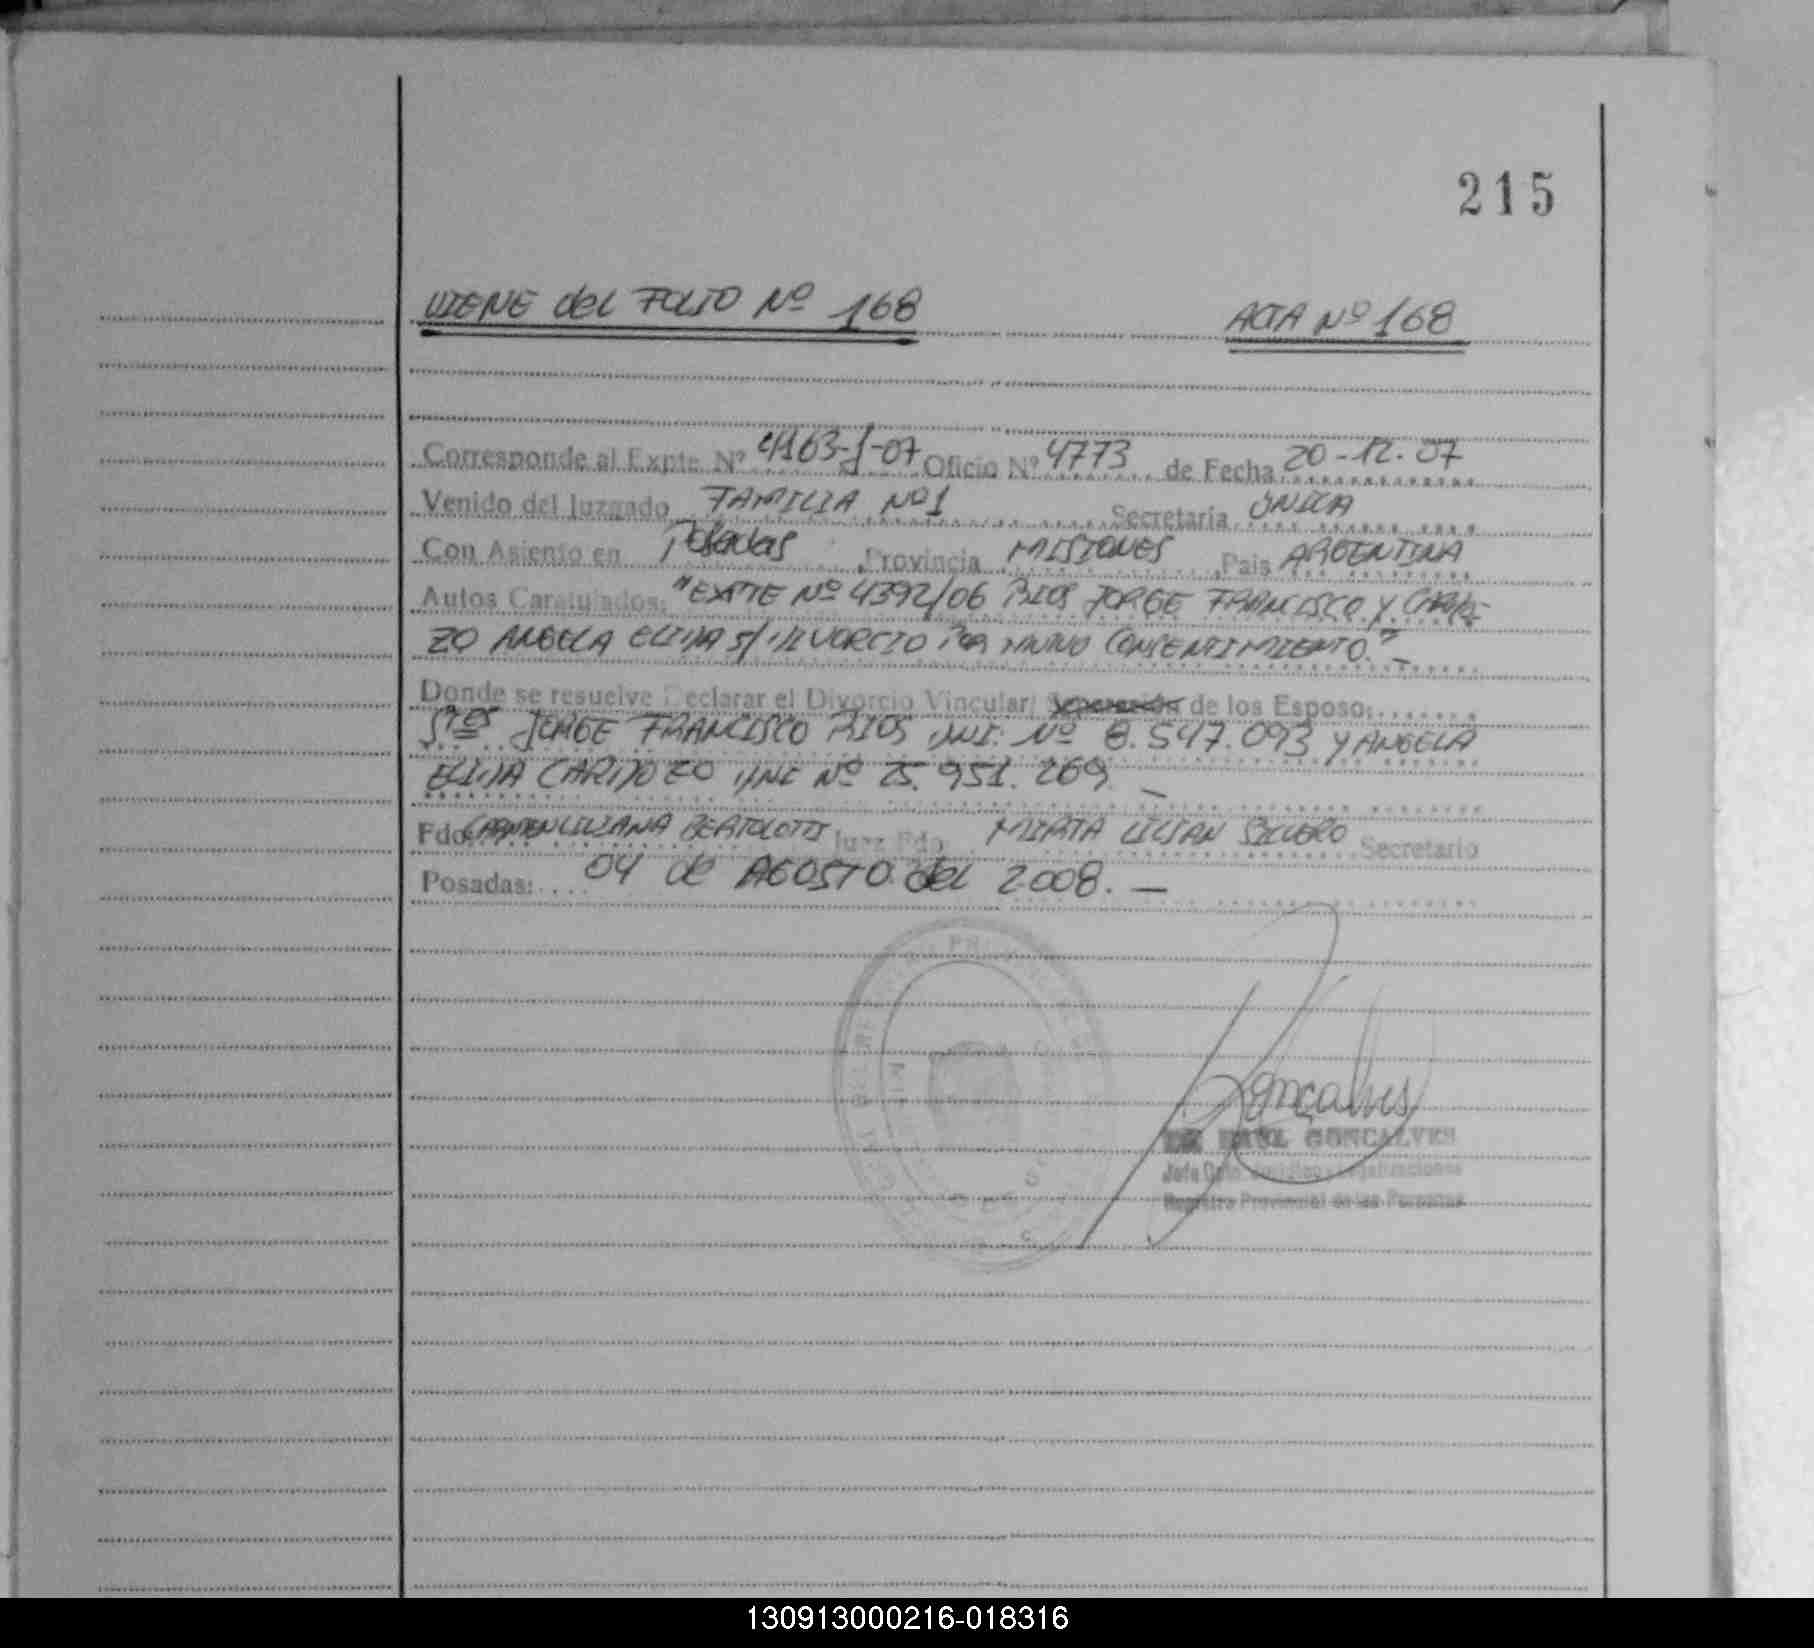 215
VIENE del FOLIO Nº 168 ACTA Nº 168
Corresponde al Expte. Nº 4163-J-07 Oficio Nº 4773 de Fecha 20-12-07
Venido del Juzgado FAMILIA Nº1 Secretaria UNICA
Con Asiento en Posadas Provincia MISIONES País ARGENTINA
Autos Caratulados: "EXPTE Nº 4392/06 RIOS JORGE FRANCISCO Y CARDO-
ZO ANGELA ELIDA S/ DIVORCIO POR MUTUO CONSENTIMIENTO." -
Donde se resuelve Declarar el Divorcio Vincular/ Separación de los Esposo:
Sres JORGE FRANCISCO RIOS DNI. Nº 8.547.093 y ANGELA
ELIDA CARDOZO DNI Nº 25.951.269. -
Fdo CARMEN LILIANA BERTOLOTTI Juez Fdo MIRTA LILIAN Secretario
Posadas: 04 de AGOSTO del 2008. -
Gonçalves
RAUL GONCALVES
Jefe Dpto. Jurídico y Legalizaciones
Registro Provincial de las Personas
130913000216-018316